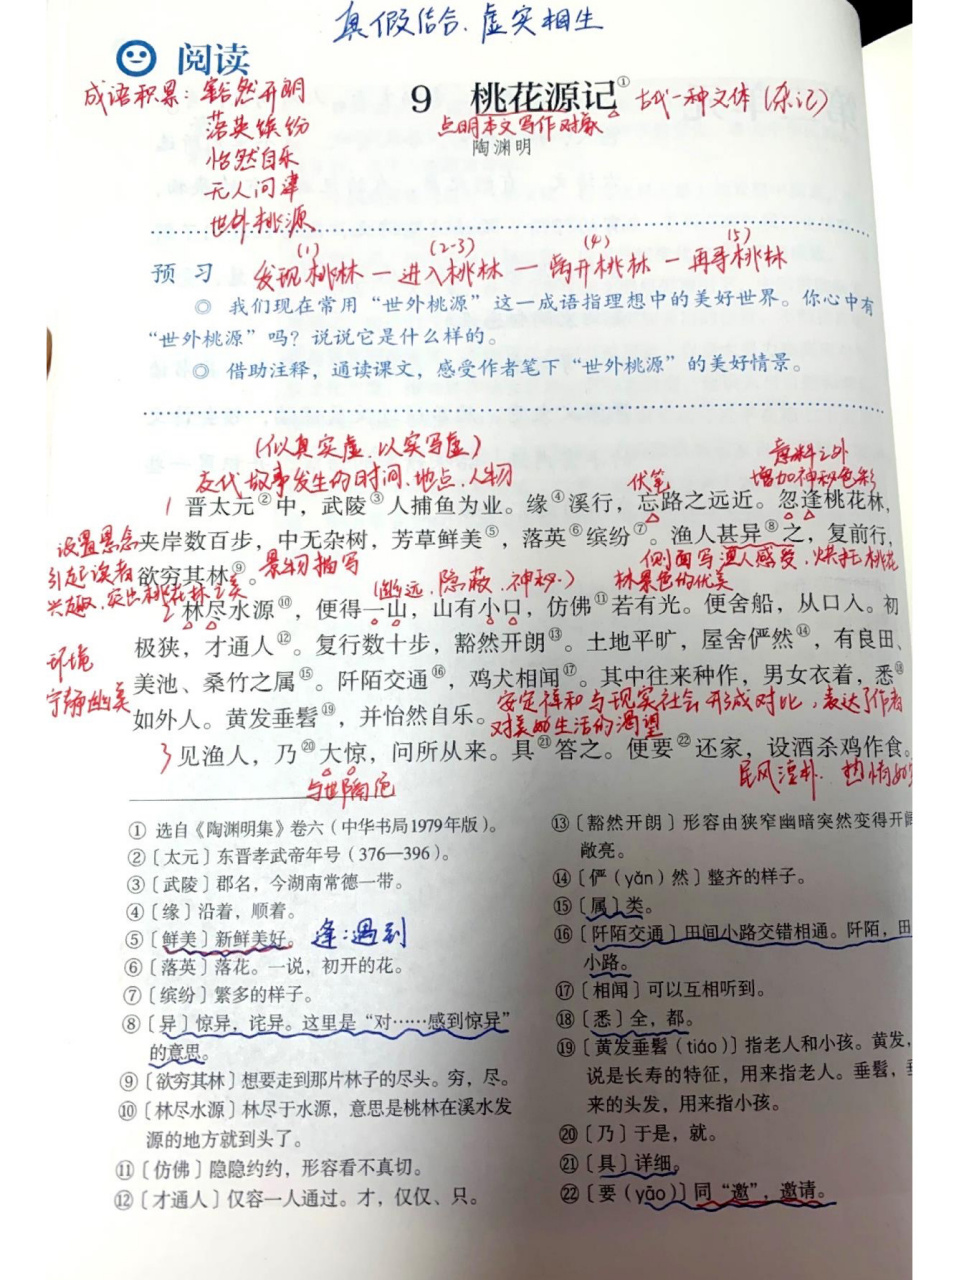 真假结合、虚实相生
阅读
成语积累：豁然开朗
落英缤纷
怡然自乐
无人问津
世外桃源
9 桃花源记①
古代一种文体（杂记）
点明本文写作对象
陶渊明
预习
(1) (2-3) (4) (5)
发现桃林—进入桃林—离开桃林—再寻桃林
◎ 我们现在常用“世外桃源”这一成语指理想中的美好世界。你心中有
“世外桃源”吗？说说它是什么样的。
◎ 借助注释，通读课文，感受作者笔下“世外桃源”的美好情景。
（似真实虚，以实写虚）
交代故事发生的时间、地点、人物
伏笔
意料之外
增加神秘色彩
1 晋太元②中，武陵③人捕鱼为业。缘④溪行，忘路之远近。忽逢桃花林，
夹岸数百步，中无杂树，芳草鲜美⑤，落英⑥缤纷⑦。渔人甚异⑧之，复前行，
欲穷其林⑨。
设置悬念
引起读者
兴趣，突出桃花林之美
景物描写
侧面写渔人感受，烘托桃花
林景色的优美
（幽远、隐蔽、神秘）
2 林尽水源⑩，便得一山，山有小口，仿佛⑪若有光。便舍船，从口入。初
极狭，才通人⑫。复行数十步，豁然开朗⑬。土地平旷，屋舍俨然⑭，有良田、
美池、桑竹之属⑮。阡陌交通⑯，鸡犬相闻⑰。其中往来种作，男女衣着，悉⑱
如外人。黄发垂髫⑲，并怡然自乐。
环境
宁静幽美
安定祥和与现实社会形成对比，表达了作者
对美好生活的渴望
3 见渔人，乃⑳大惊，问所从来。具㉑答之。便要㉒还家，设酒杀鸡作食。
与世隔绝
民风淳朴、热情好
① 选自《陶渊明集》卷六（中华书局1979年版）。
②〔太元〕东晋孝武帝年号（376—396）。
③〔武陵〕郡名，今湖南常德一带。
④〔缘〕沿着，顺着。
⑤〔鲜美〕新鲜美好。 逢：遇到
⑥〔落英〕落花。一说，初开的花。
⑦〔缤纷〕繁多的样子。
⑧〔异〕惊异，诧异。这里是“对……感到惊异”
的意思。
⑨〔欲穷其林〕想要走到那片林子的尽头。穷，尽。
⑩〔林尽水源〕林尽于水源，意思是桃林在溪水发
源的地方就到头了。
⑪〔仿佛〕隐隐约约，形容看不真切。
⑫〔才通人〕仅容一人通过。才，仅仅、只。
⑬〔豁然开朗〕形容由狭窄幽暗突然变得开阔
敞亮。
⑭〔俨（yǎn）然〕整齐的样子。
⑮〔属〕类。
⑯〔阡陌交通〕田间小路交错相通。阡陌，田
小路。
⑰〔相闻〕可以互相听到。
⑱〔悉〕全，都。
⑲〔黄发垂髫（tiáo）〕指老人和小孩。黄发，
说是长寿的特征，用来指老人。垂髫，
来的头发，用来指小孩。
⑳〔乃〕于是，就。
㉑〔具〕详细。
㉒〔要（yāo）〕同“邀”，邀请。